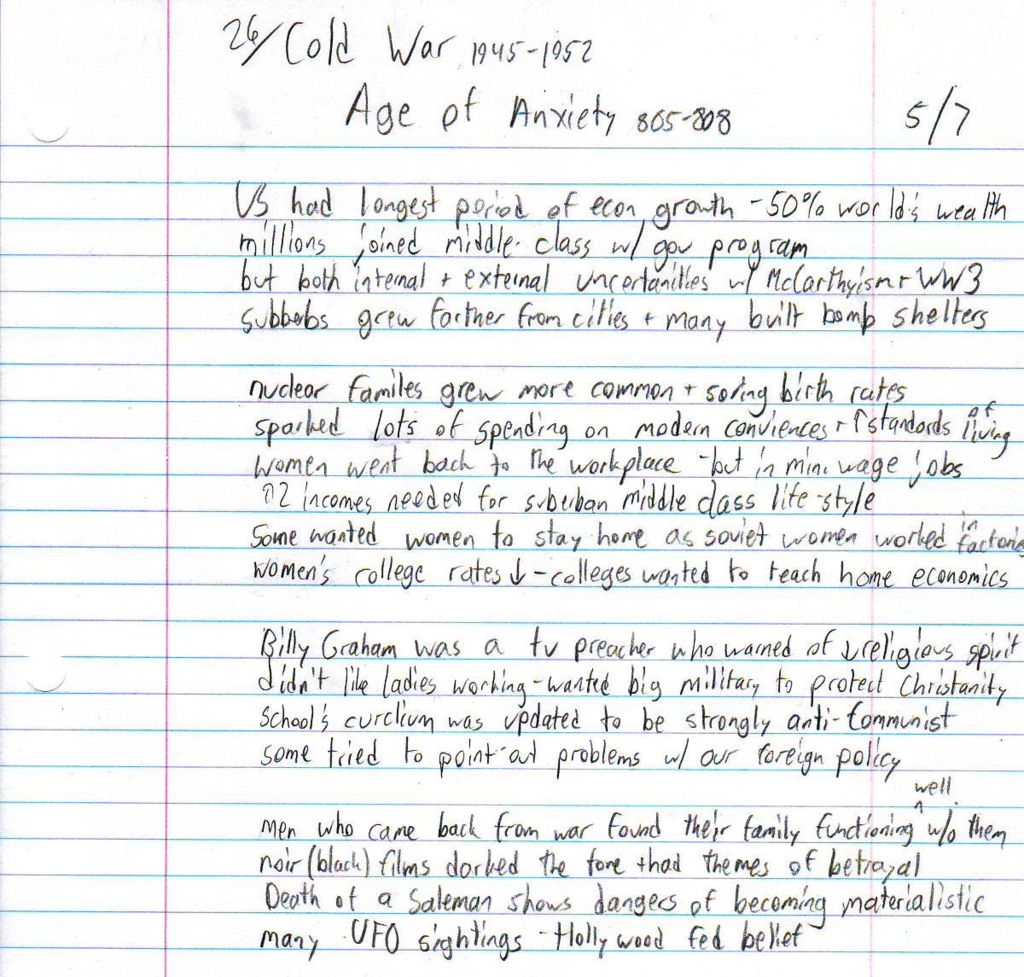 26/Cold War 1945-1952
Age of Anxiety 805-808 5/7
US had longest period of econ growth - 50% world's wealth
millions joined middle class w/ gov program
but both internal + external uncertanities w/ McCarthyism + WW3
subberbs grew farther from cities + many built bomb shelters
nuclear familes grew more common + soring birth rates
sparked lots of spending on modern conviences + ↑ standards of living
women went back to the workplace - but in min. wage jobs
↑2 incomes needed for suberban middle class life-style
Some wanted women to stay home as soviet women worked in factories
women's college rates ↓ - colleges wanted to teach home economics
Billy Graham was a tv preacher who warned of ↓ religious spirit
didn't like ladies working - wanted big military to protect Christanity
School's curclium was updated to be strongly anti-Communist
some tried to point-out problems w/ our foreign policy
men who came back from war found their family functioning well w/o them
noir (black) films darked the tone + had themes of betrayal
Death of a Saleman shows dangers of becoming materialistic
many UFO sightings - Hollywood fed belief